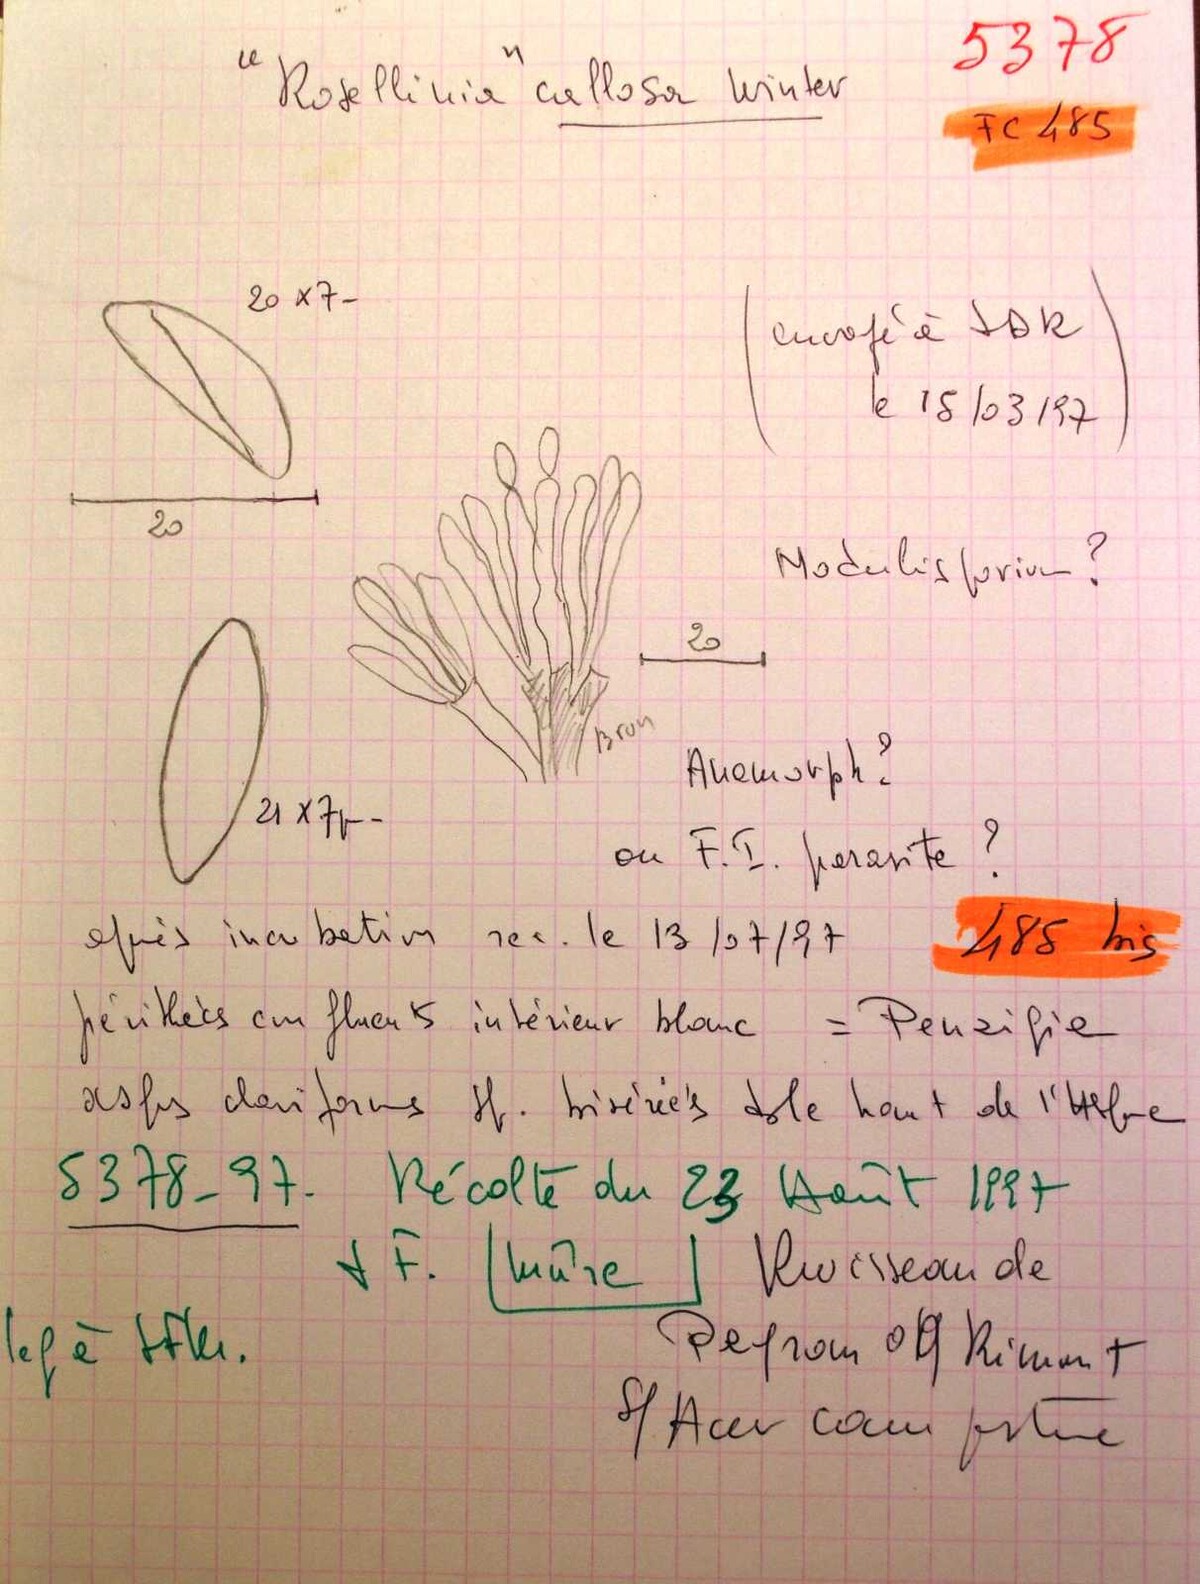 5378
"Rosellinia" callosa Winter
FC 485
20 x 7
(envoyé à JDR
le 15/03/97)
20
Nodulisporium?
20
Brun
21 x 7µ
Anamorph?
ou F.I. parasite?
après incubation rec. le 13/07/97
485 bis
périthèces confluents intérieur blanc = Penzigia
asques claviformes sp. bisériées ds le haut de l'asque
5378-97. Récolte du 23 Août 1997
F. mûre Ruisseau de
leg à
Peyrau 09 Rimont
S/ Acer campestre